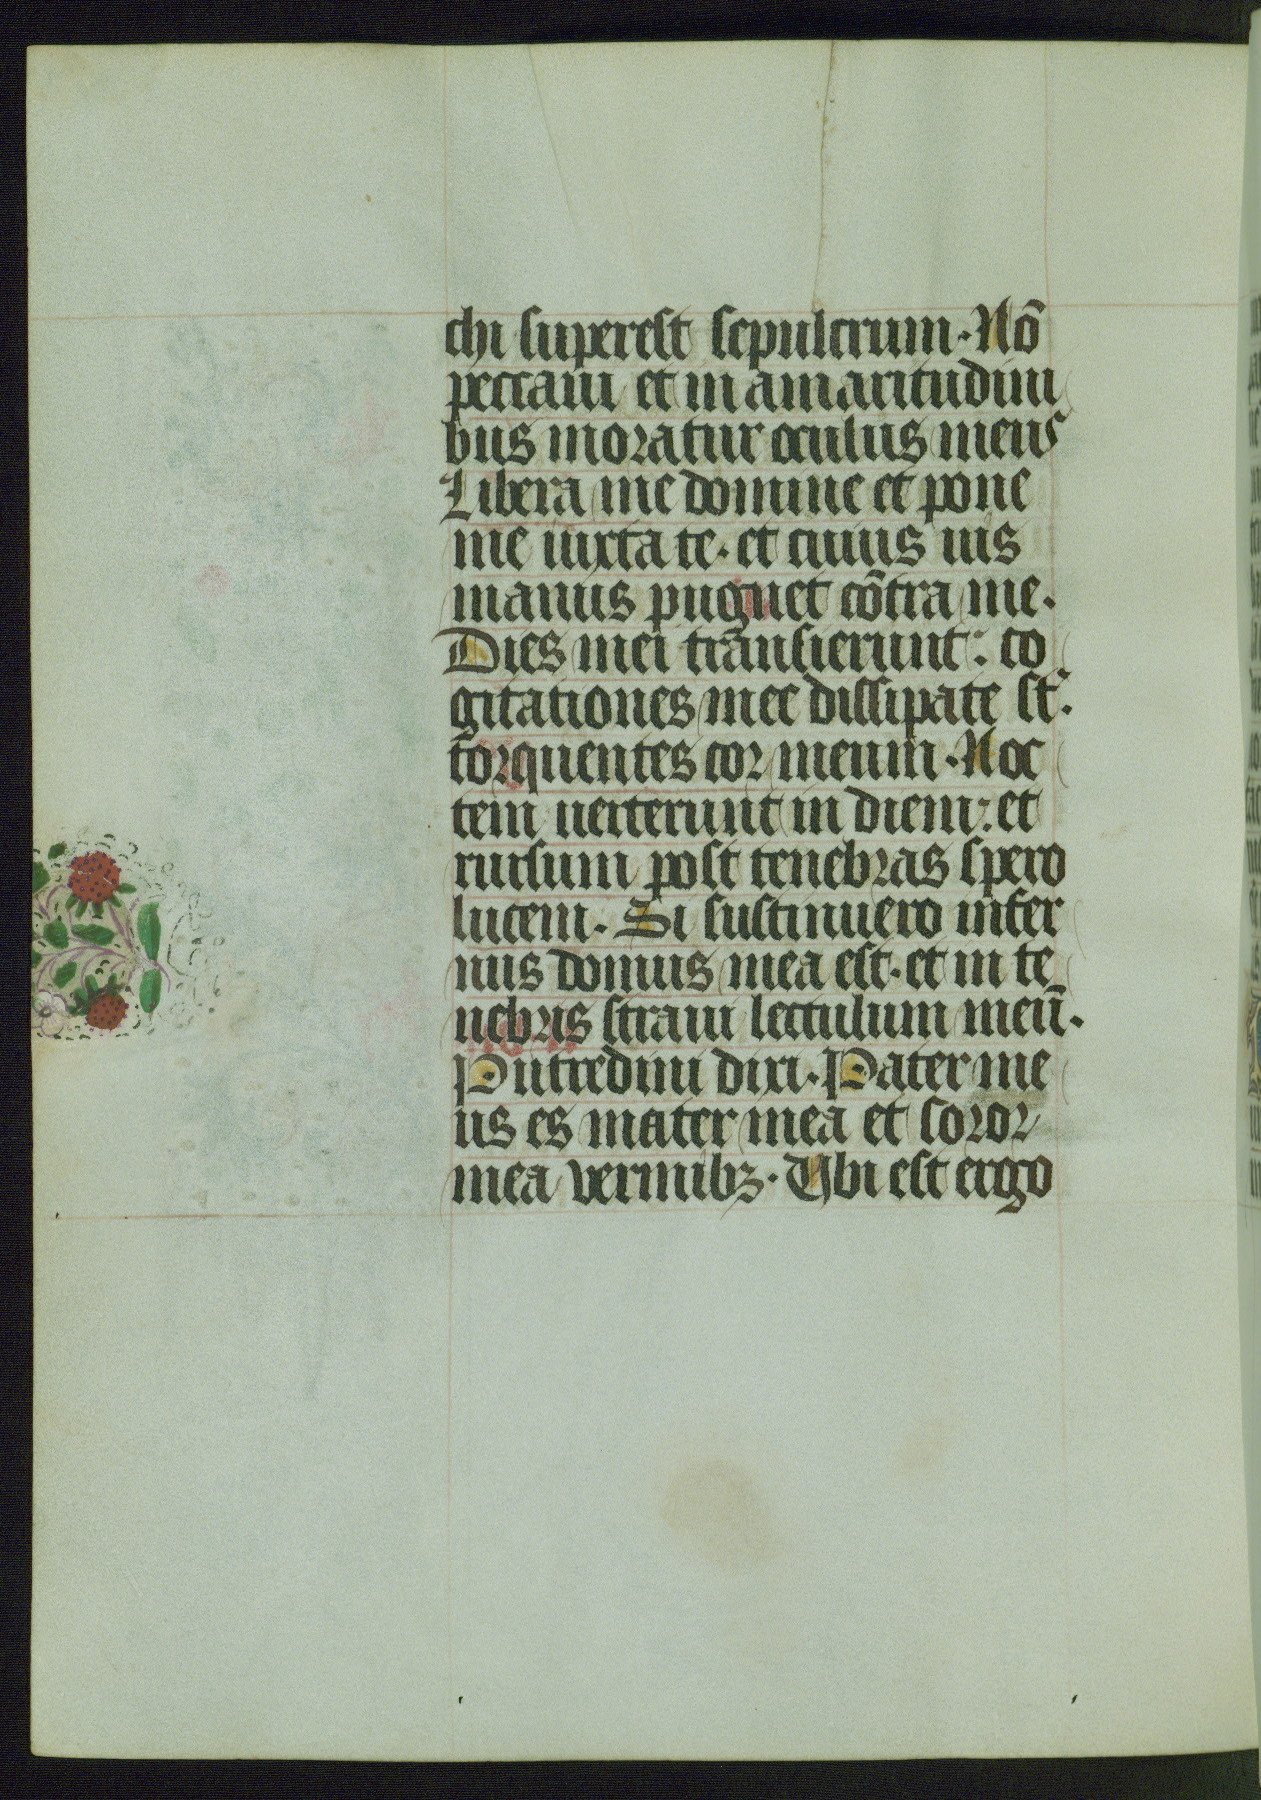 chi superest sepulcrum. Nō
peccaui et in amaritudini
bus moratur oculus meus
Libera me domine et pone
me iuxta te. et cuiuis uis
manus pugnet cōtra me.
Dies mei transierunt: co
gitationes mee dissipate st̄.
torquentes cor meum. Noc
tem uerterunt in diem: et
rursum post tenebras spero
lucem. Si sustinuero infer
nus domus mea est. et in te
nebris straui lectulum meū.
Putredini dixi. Pater me
us es mater mea et soror
mea vermibꝫ. Vbi est ergo